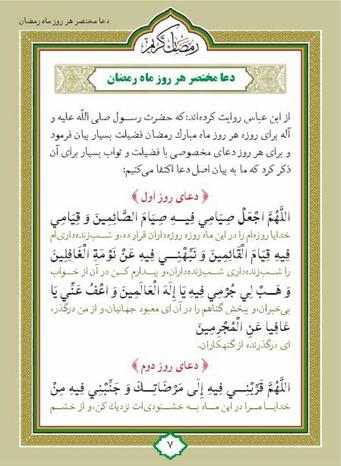 دعا مختصر هر روز ماه رمضان
رمضان کریم
دعا مختصر هر روز ماه رمضان
از ابن عباس روایت کرده‌اند: که حضرت رسول صلی الله علیه و
آله برای روزه هر روز ماه مبارك رمضان فضیلت بسیار بیان فرمود
و برای هر روز دعای مخصوصی با فضیلت و ثواب بسیار برای آن
ذکر کرد که ما به بیان اصل دعا اکتفا می‌کنیم:
﴿دعای روز اول﴾
اللَّهُمَّ اجْعَلْ صِيَامِي فِيهِ صِيَامَ الصَّائِمِينَ وَ قِيَامِي
خدایا روزه‌ام را در این ماه روزه روزه‌داران قرار ده، و شب‌زنده‌داری‌ام
فِيهِ قِيَامَ الْقَائِمِينَ وَ نَبِّهْنِي فِيهِ عَنْ نَوْمَةِ الْغَافِلِينَ
را شب‌زنده‌داری شب‌زنده‌داران، و بیدارم کن در آن از خواب
وَ هَبْ لِي جُرْمِي فِيهِ يَا إِلَهَ الْعَالَمِينَ وَ اعْفُ عَنِّي يَا
بی‌خبران، و ببخش گناهم را در آن ای معبود جهانیان، و از من درگذر،
عَافِيا عَنِ الْمُجْرِمِينَ
ای درگذرنده از گنهکاران.
﴿دعای روز دوم﴾
اللَّهُمَّ قَرِّبْنِي فِيهِ إِلَى مَرْضَاتِكَ وَ جَنِّبْنِي فِيهِ مِنْ
خدایا مرا در این ماه به خشنودی‌ات نزدیك کن، و از خشم
۷